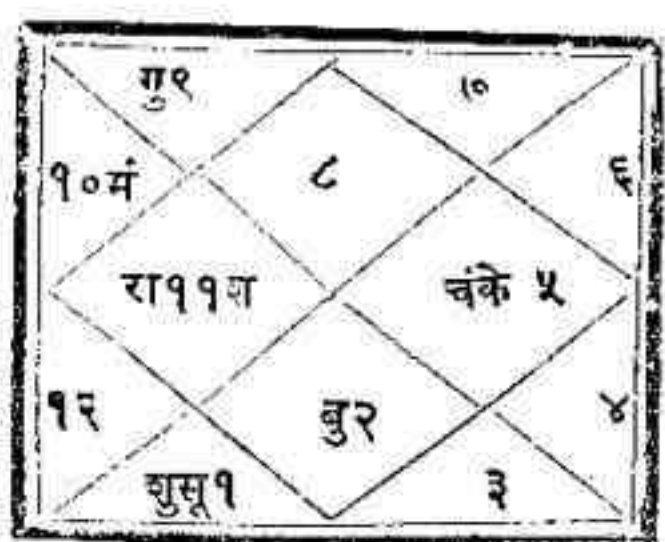 गु९ ७
१०मं ८ ६
रा११श चंके ५
१२ बु२ ४
शुसू१ ३